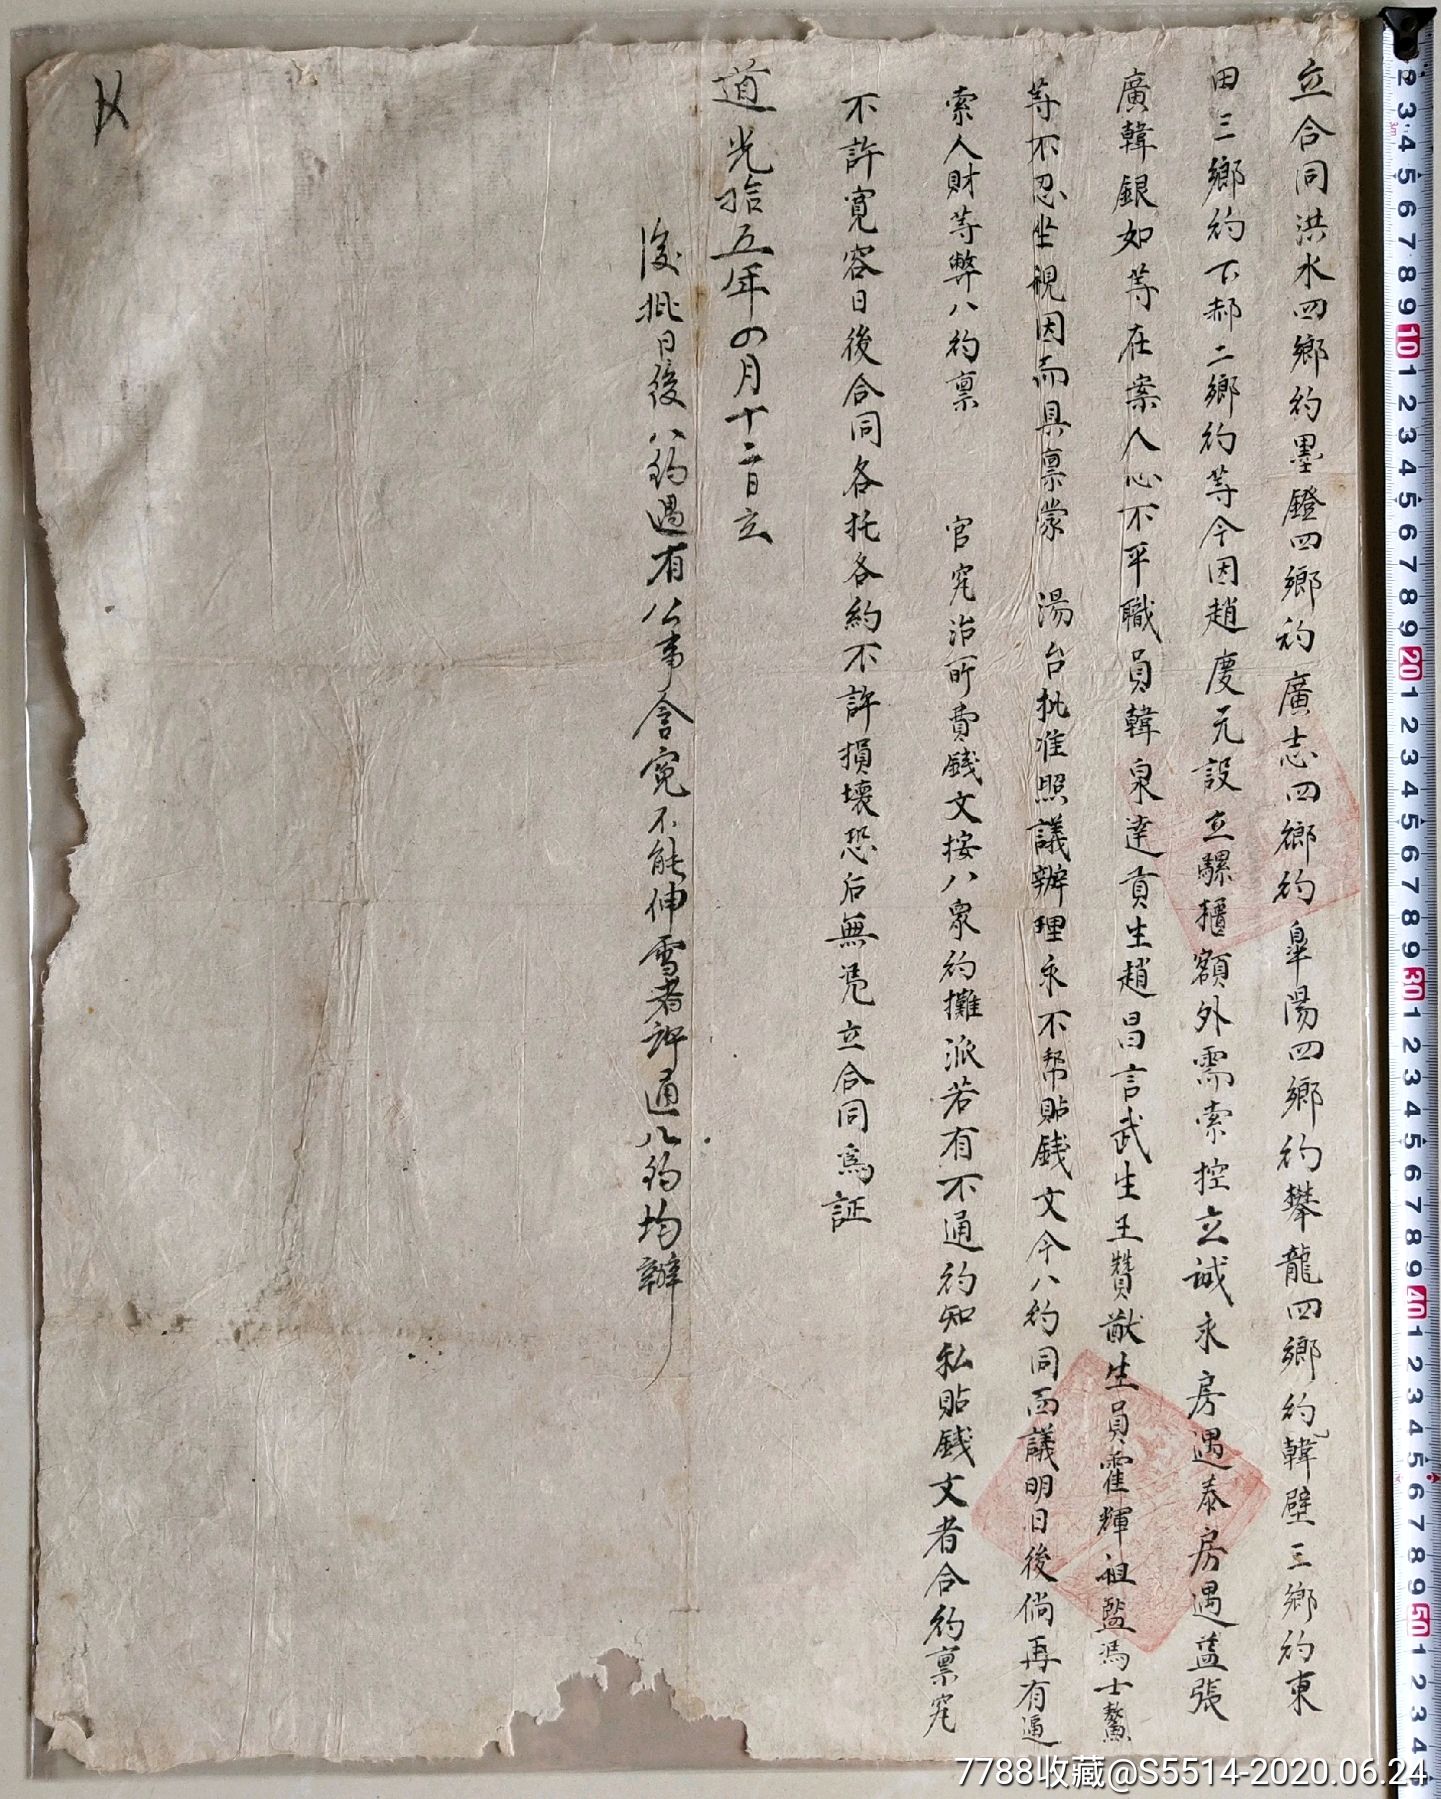 立合同洪水四鄉約墨鐙四鄉約廣志四鄉約臯陽四鄉約攀龍四鄉約韓壁三鄉約東
田三鄉約下郝二鄉約等今因趙慶元設立騾櫃額外需索控立誠永房遇泰房遇益張
廣韓銀如等在案人心不平職員韓泉達貢生趙昌言武生王贊猷生員霍輝祖監馮士鰲
等不忍坐視因而具禀蒙 湯台批准照議辦理永不幫貼錢文今八約同面議明日後倘再有逼
索人財等弊八約禀 官究治所費錢文按八眾約攤派若有不通約知私貼錢文者合約禀究
不許寬容日後合同各托各約不許損壞恐后無凴立合同為証
道光拾五年四月十二日立
後批日後八約遇有公事含冤不能伸雪者許通八約均辦
7788收藏@S5514-2020.06.24